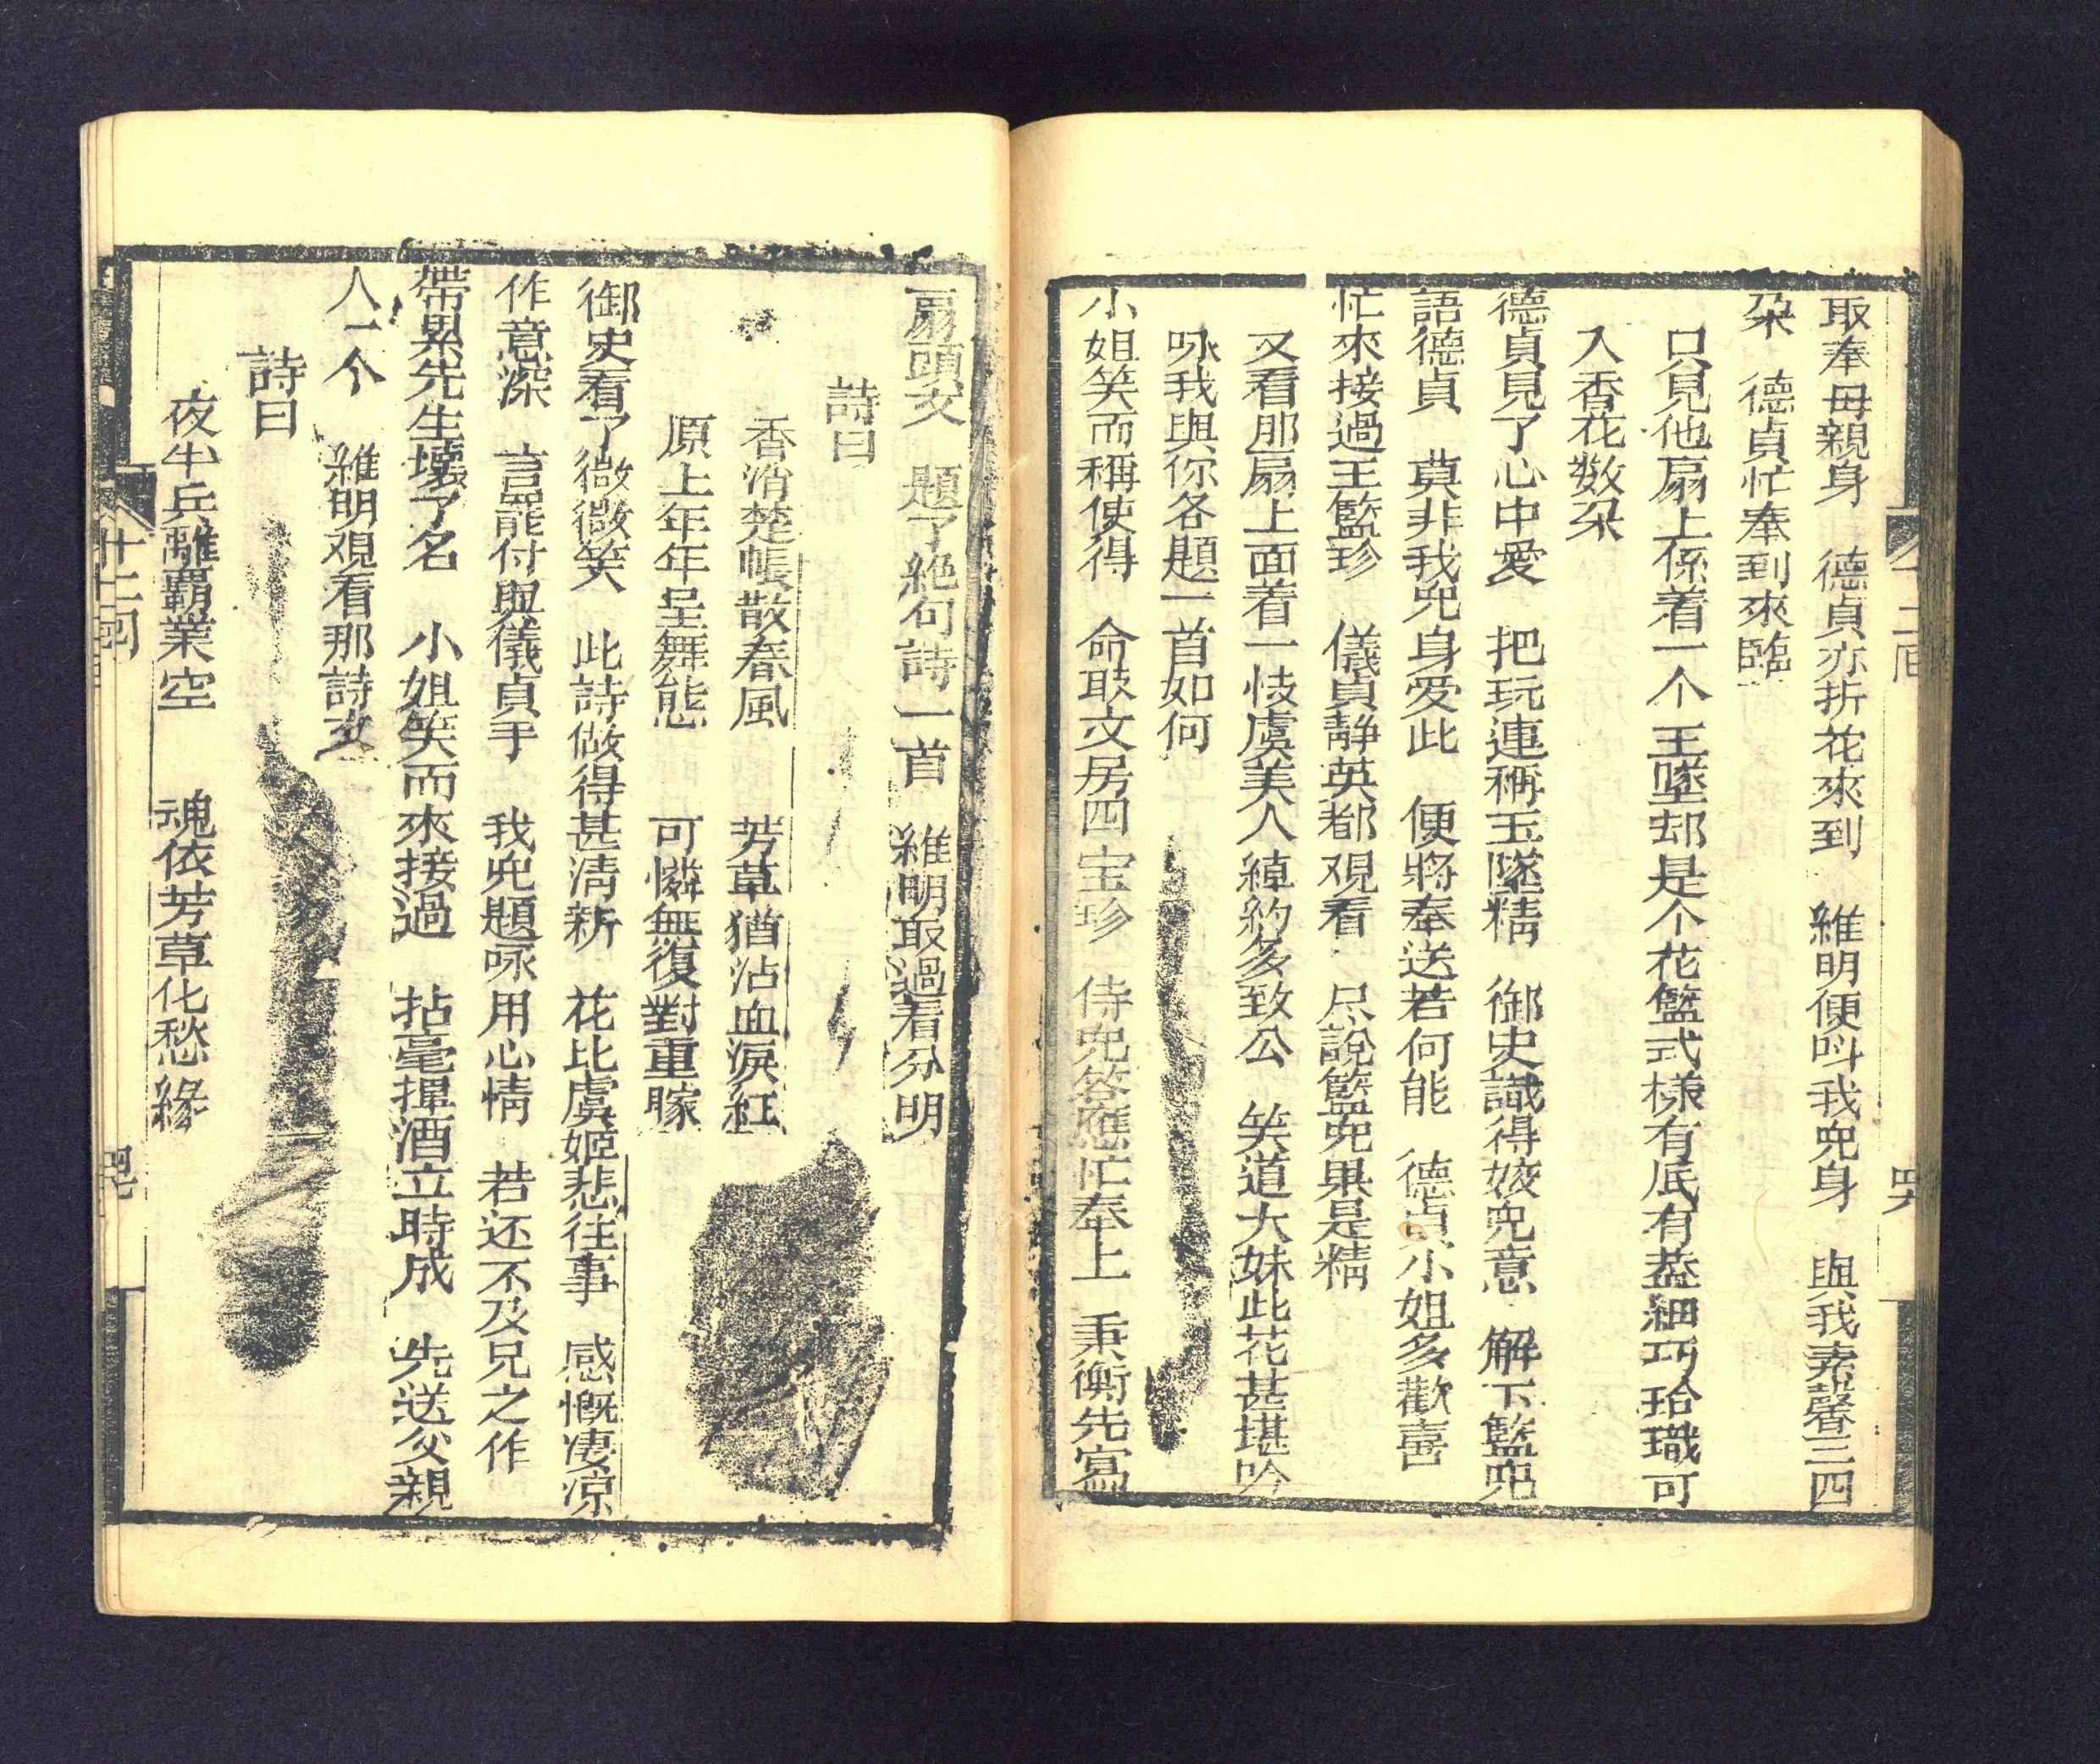 取奉母親身　德貞亦折花來到　維明便呌我皃身　與我素馨三四
朶　德貞忙奉到來臨
只見他扇上係着一个王墜却是个花籃式樣有底有盖細巧玲瓏可
入香花数朶
德貞見了心中愛　把玩連稱玉墜精　御史識得姣皃意　解下籃皃
語德貞　莫非我皃身愛此　便將奉送若何能　德貞小姐多歡喜
忙來接過王籃珍　儀貞静英都观看　尽說籃皃果是精
又看那扇上面着一枝虞美人綽約多致公　笑道大妹此花甚堪吟
咏我與你各題一首如何
小姐笑而稱使得　命取文房四宝珍　侍皃答應忙奉上　秉衡先寫
扇頭文　題了絶句詩一首　維明取過看分明
詩曰
香消楚帳散春風　芳草猶沾血淚紅
原上年年呈舞態　可憐無復對重瞳
御史看了微微笑　此詩做得甚清新　花比虞姬悲往事　感慨凄凉
作意深　言罷付與儀貞手　我皃題咏用心情　若还不及兄之作
帶累先生壞了名　小姐笑而來接過　拈毫揮洒立時成　先送父親
人一个　維明观看那詩文
詩曰
夜半兵離覇業空　魂依芳草化愁緣
廿十二囬